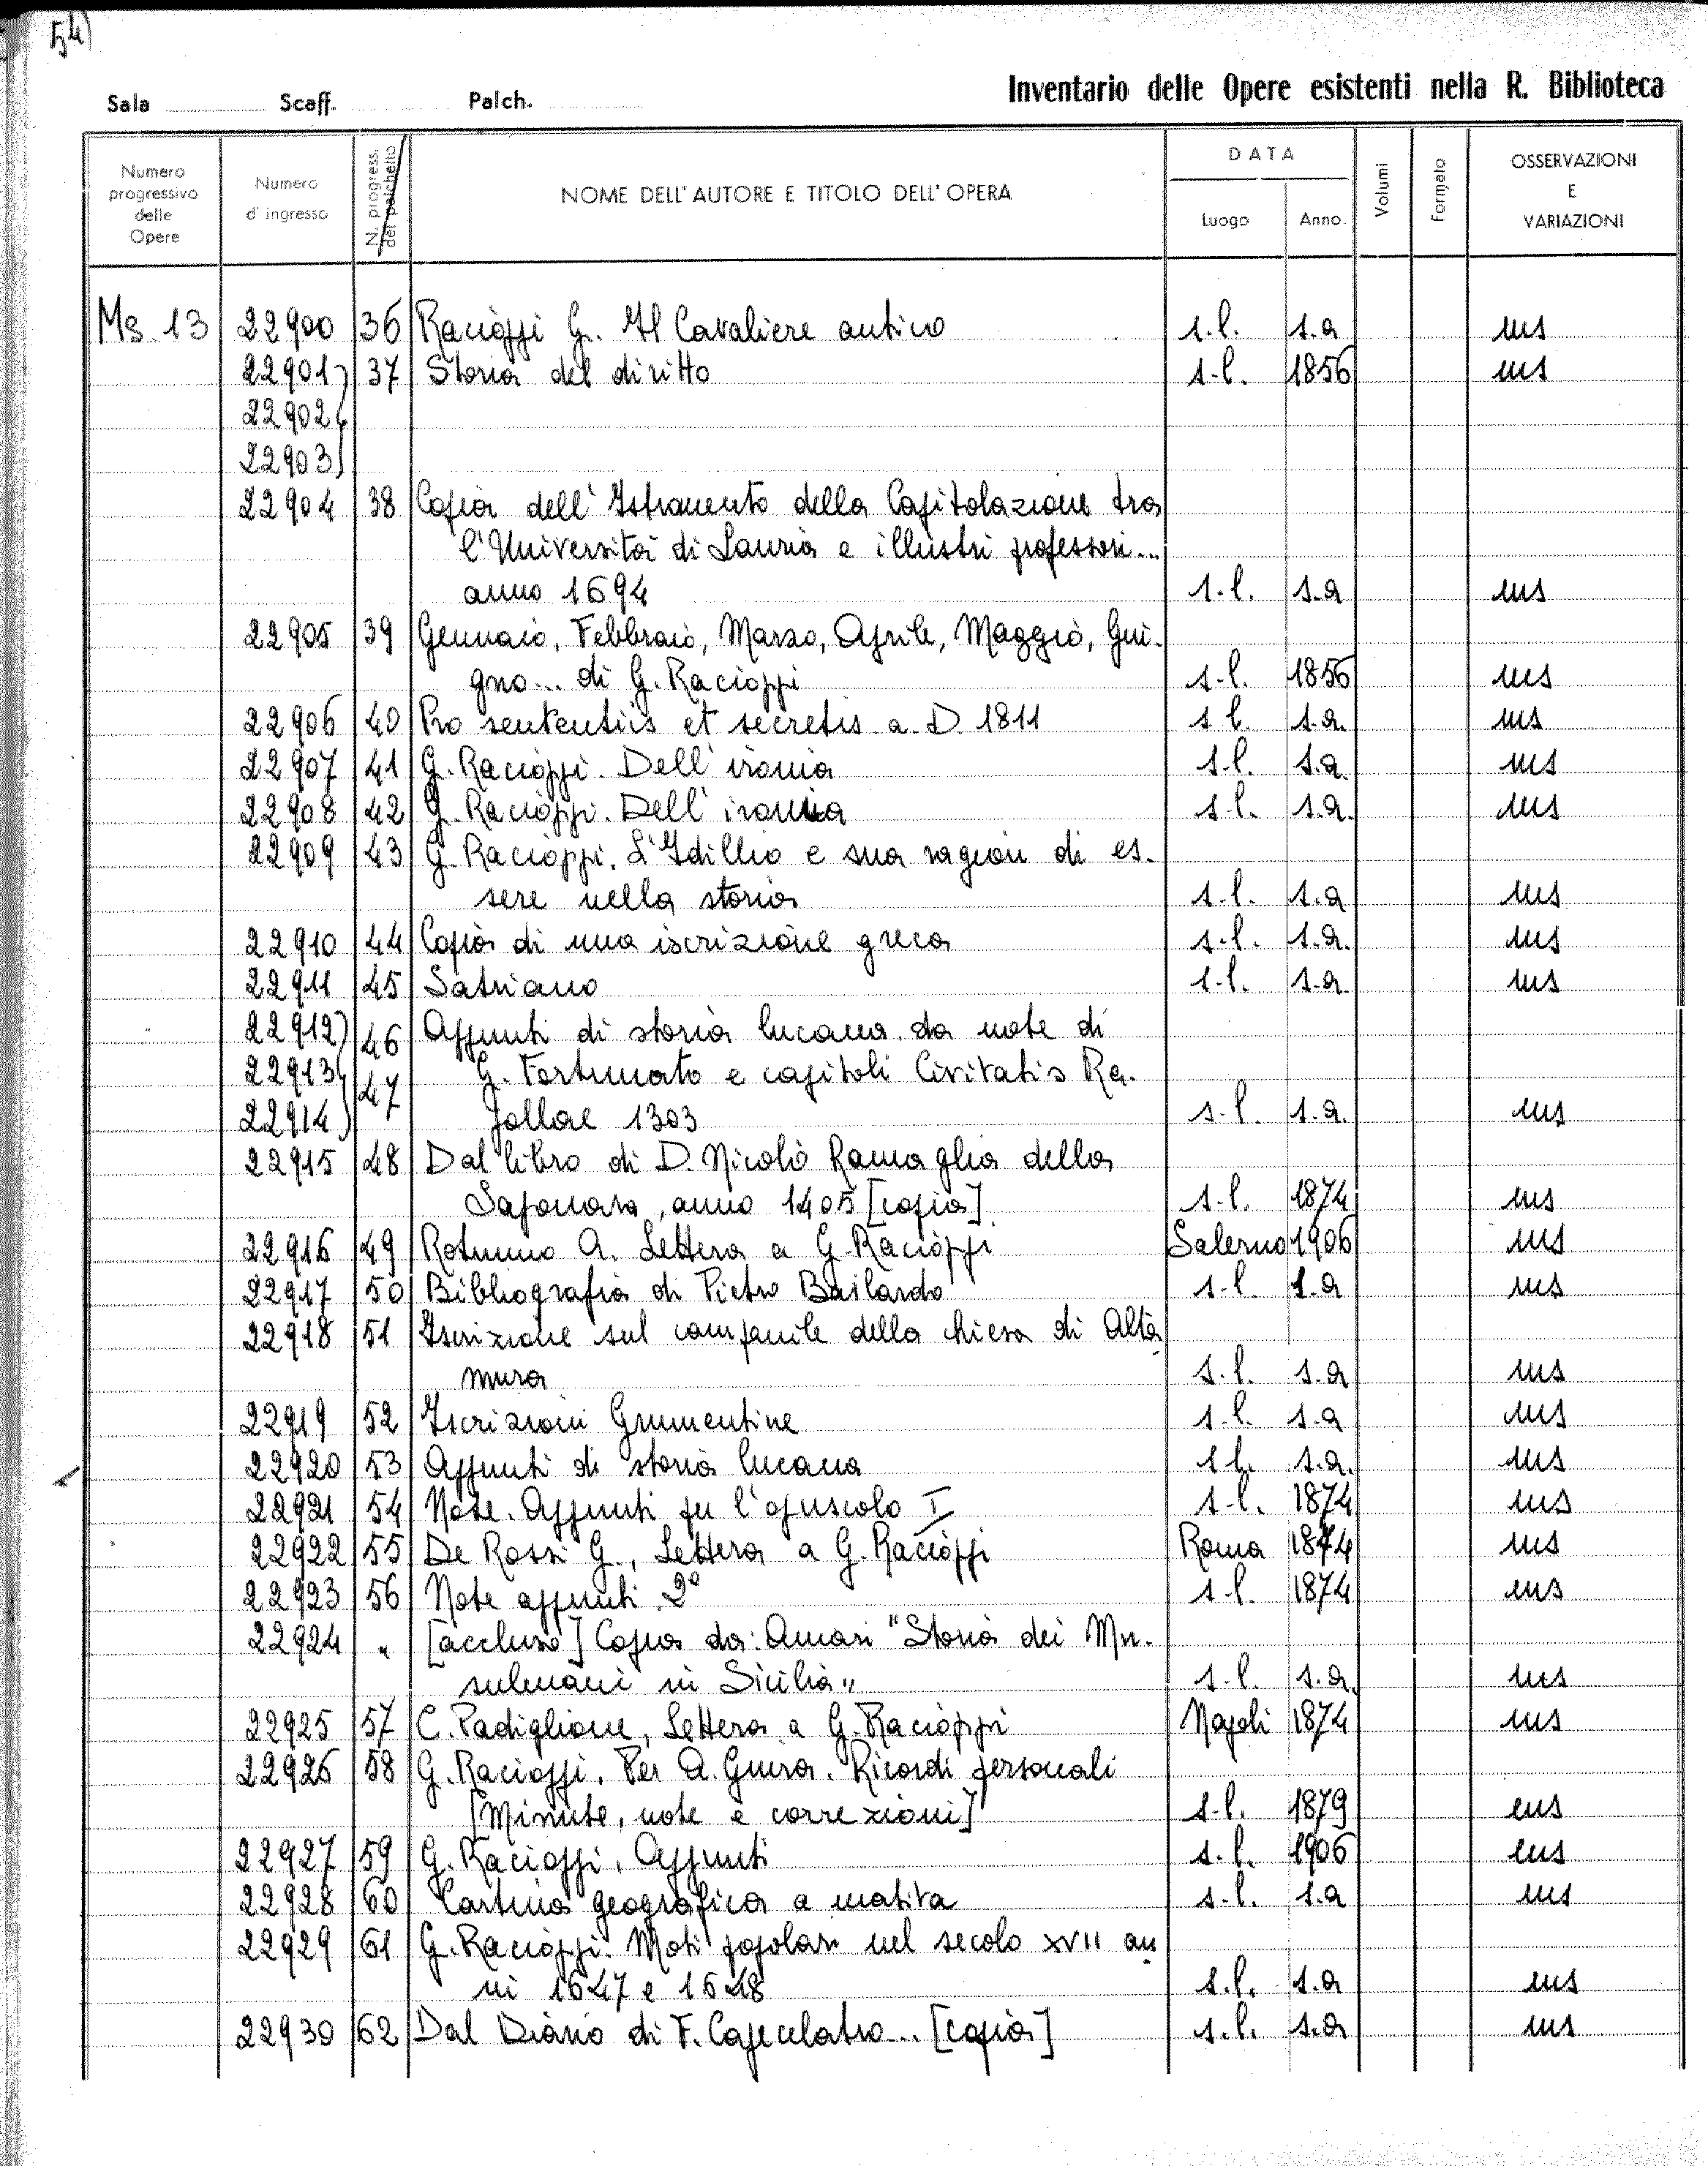 54)
Sala Scaff. Palch. Inventario delle Opere esistenti nella R. Biblioteca
Numero progressivo delle Opere | Numero d'ingresso | N. progress. del palchetto | NOME DELL'AUTORE E TITOLO DELL'OPERA | DATA Luogo Anno | Volumi | Formato | OSSERVAZIONI E VARIAZIONI
Ms. 13 22900 36 Racioppi G. Il Cavaliere antico s.l. s.a ms
22901) 37 Storia del diritto s.l. 1856 ms
22902(
22903)
22904 38 Copia dell'Istromento della Capitolazione tra
l'Università di Lauria e illustri professori...
anno 1694 s.l. s.a ms
22905 39 Gennaio, Febbraio, Marzo, Aprile, Maggio, Giu-
gno... di G. Racioppi s.l. 1856 ms
22906 40 Pro sententiis et secretis a. D. 1811 s.l. s.a. ms
22907 41 G. Racioppi. Dell'ironia s.l. s.a. ms
22908 42 G. Racioppi. Dell'ironia s.l. s.a. ms
22909 43 G. Racioppi. L'Idillio e sua ragion di es-
sere nella storia s.l. s.a ms
22910 44 Copia di una iscrizione greca s.l. s.a. ms
22911 45 Satriano s.l. s.a. ms
22912) 46 Appunti di storia lucana da note di
22913( 47 G. Fortunato e capitoli Civitatis Ra-
22914) pollae 1303 s.l. s.a. ms
22915 48 Dal libro di D. Nicolò Ramaglia della
Saponara, anno 1405 [copia] s.l. 1874 ms
22916 49 Rotunno A. Lettera a G. Racioppi Salerno 1906 ms
22917 50 Bibliografia di Pietro Bailardo s.l. s.a ms
22918 51 Iscrizione sul campanile della chiesa di Alta
mura s.l. s.a ms
22919 52 Iscrizioni Grumentine s.l. s.a ms
22920 53 Appunti di storia lucana s.l. s.a. ms
22921 54 Note. Appunti per l'opuscolo I s.l. 1874 ms
22922 55 De Rossi G., Lettera a G. Racioppi Roma 1874 ms
22923 56 Note appunti 2° s.l. 1874 ms
22924 " [accluso] Copia da: Amari "Storia dei Mu-
sulmani in Sicilia" s.l. s.a. ms
22925 57 C. Padiglione, Lettera a G. Racioppi Napoli 1874 ms
22926 58 G. Racioppi. Per A. Ricordi personali
[Minute, note e correzioni] s.l. 1879 ms
22927 59 G. Racioppi, Appunti s.l. 1906 ms
22928 60 Cartina geografica a matita s.l. s.a ms
22929 61 G. Racioppi. Moti popolari nel secolo XVII an
ni 1647 e 1648 s.l. s.a ms
22930 62 Dal Diario di F. Capecelatro... [copia] s.l. s.a ms